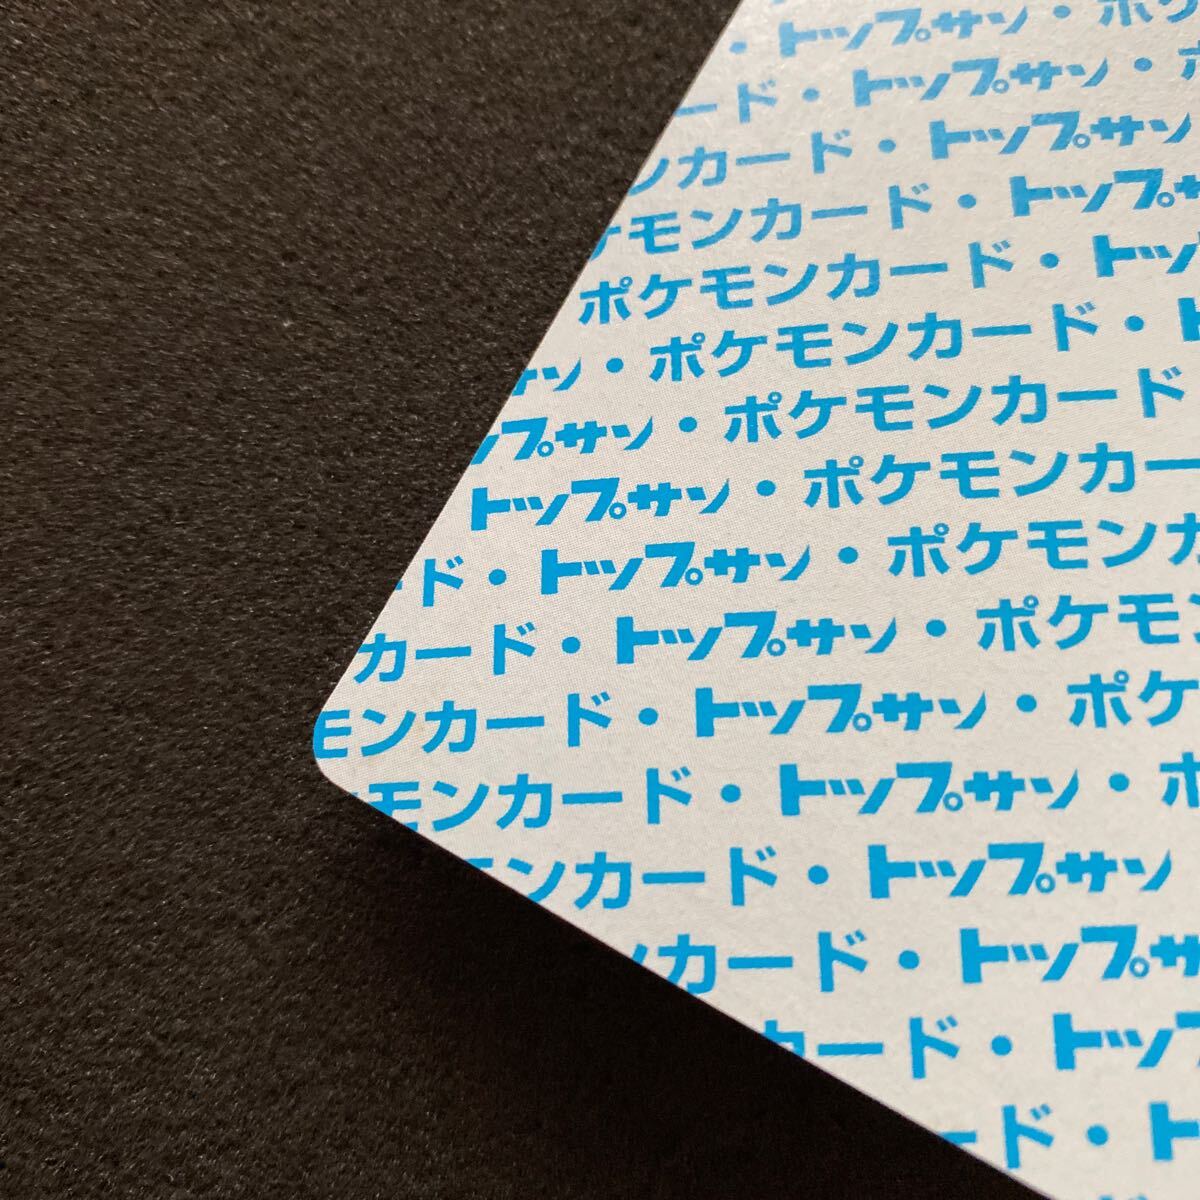 ・トップサン・ポケ
ード・トップサン・
カード・トップサン
ンカード・トップサ
ケモンカード・トップサ
ポケモンカード・トッ
サン・ポケモンカード・ト
ップサン・ポケモンカード
トップサン・ポケモンカー
ード・トップサン・ポケモンカ
カード・トップサン・ポケモン
モンカード・トップサン・ポケ
ケモンカード・トップサン・ポ
モンカード・トップサン
ンカード・トップサ
カード・トップ
ード・ト